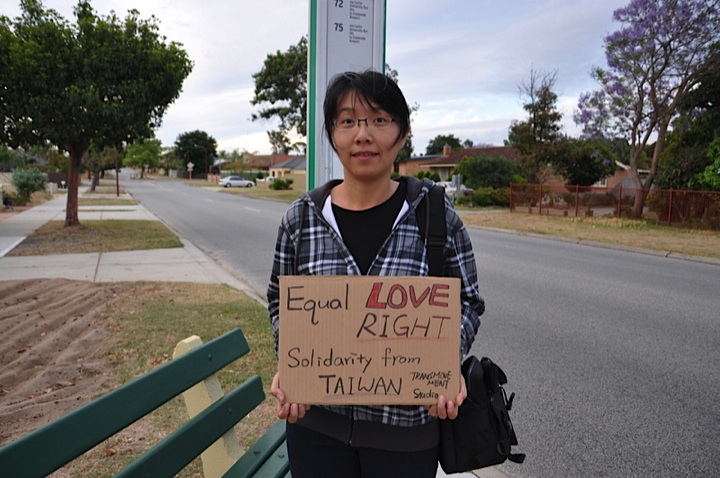 72
75
Equal LOVE
RIGHT
Solidarity from
TAIWAN
TRANSMOVE
MENT
Studio